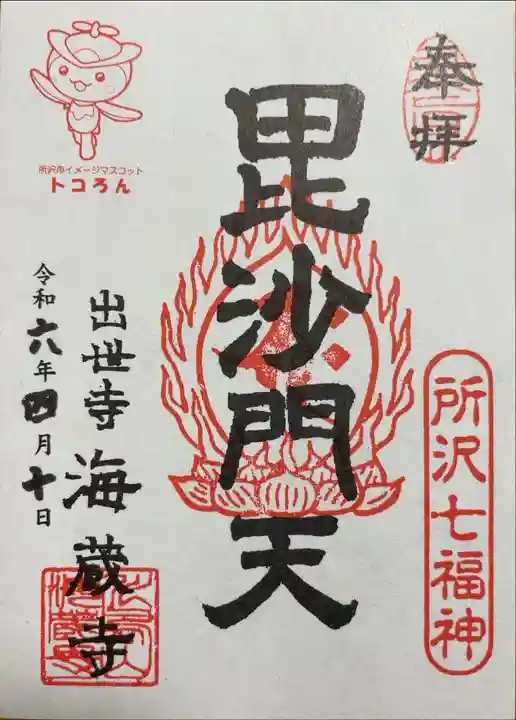 奉拝
所沢七福神
毘沙門天
所沢市イメージマスコット
トコろん
出世寺 海蔵寺
令和六年四月十日